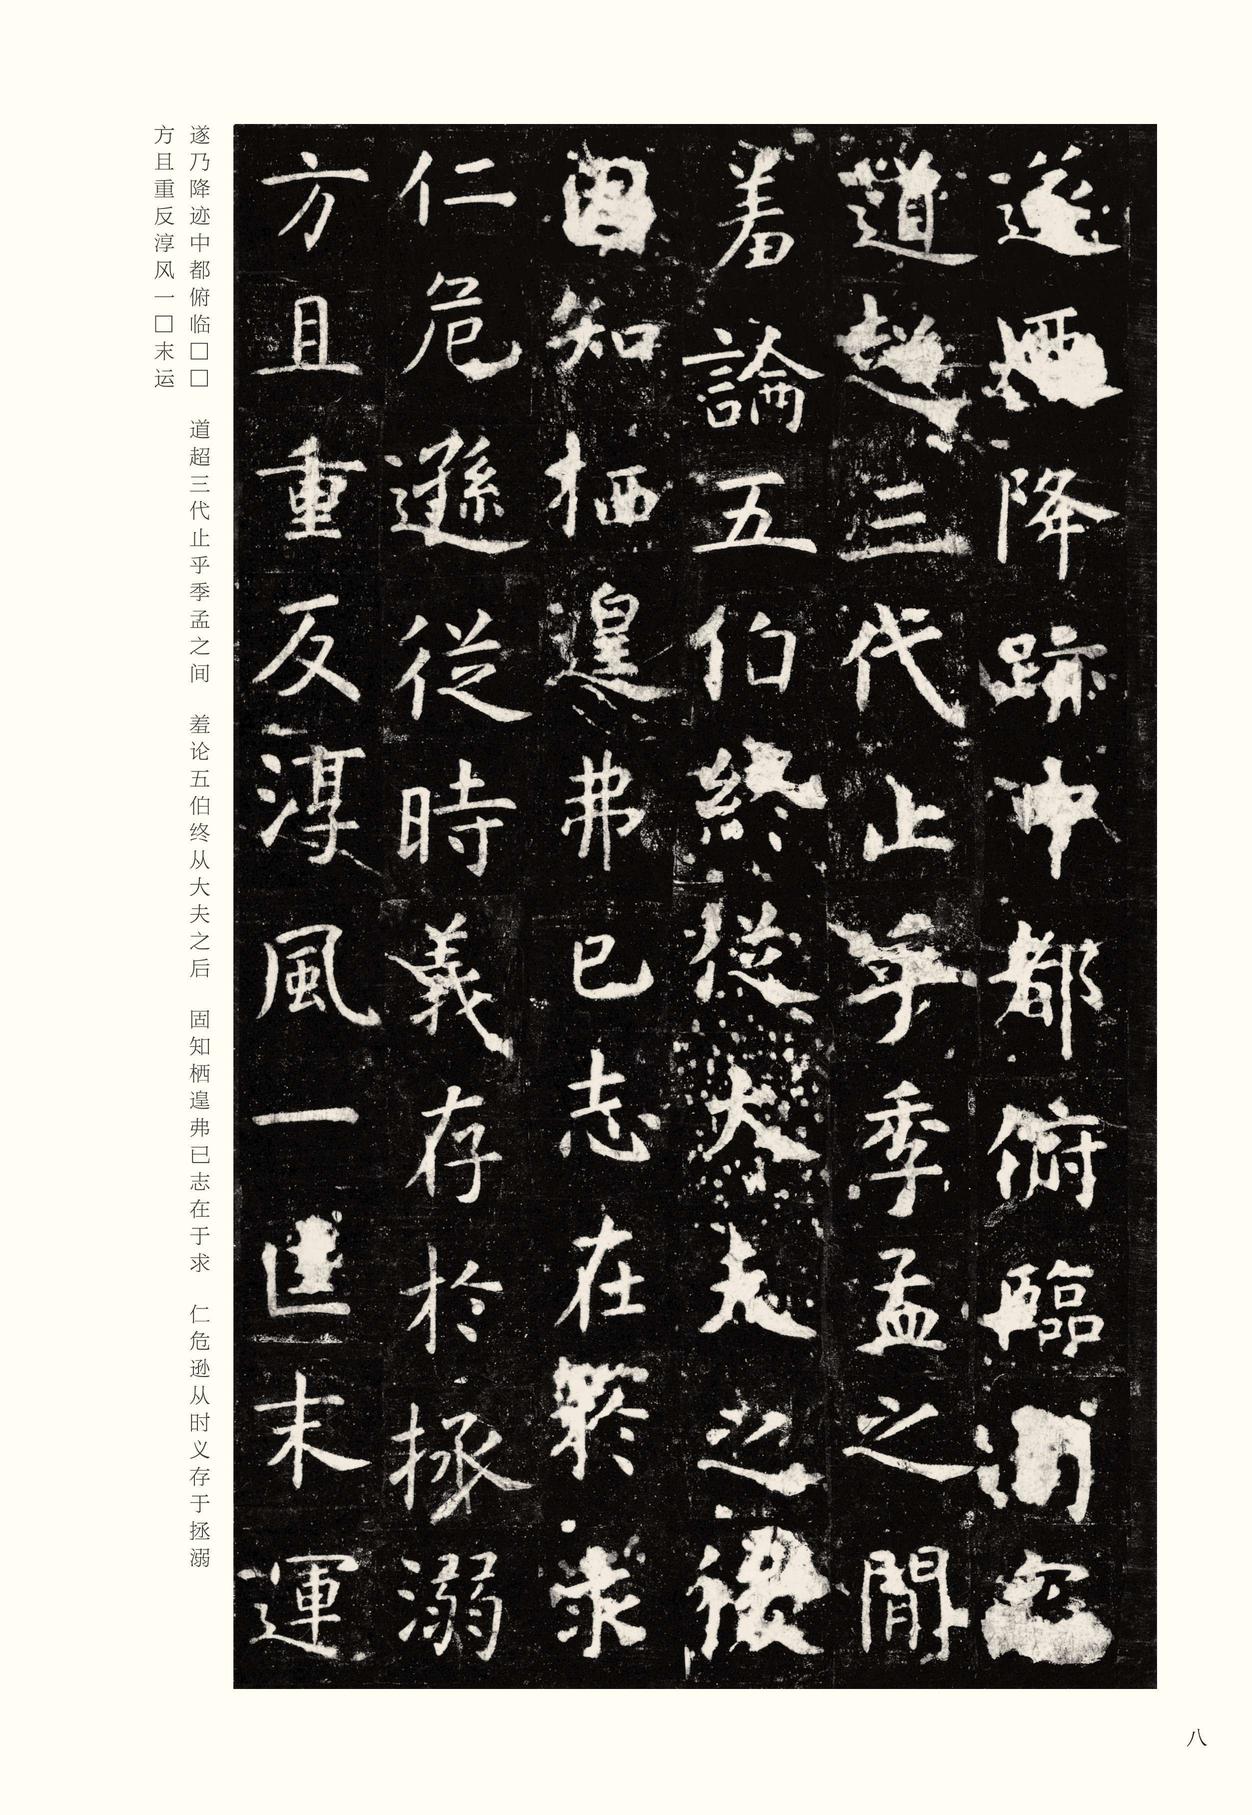 遂降跡中都俯臨
道超三代止乎季孟之間
羞論五伯終從大夫之後
固知栖遑弗已志在於求
仁危遜從時義存於拯溺
方且重反淳風一匡末運
遂乃降迹中都俯临□□　道超三代止乎季孟之间　羞论五伯终从大夫之后　固知栖遑弗已志在于求　仁危逊从时义存于拯溺
方且重反淳风一□末运
八